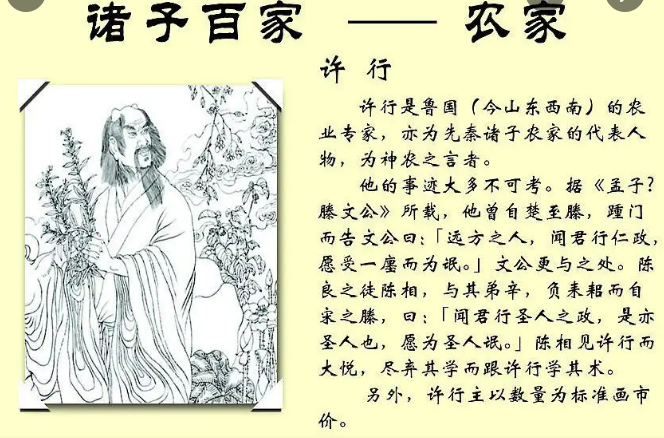 诸子百家 —— 农家
许 行
许行是鲁国（今山东西南）的农
业专家，亦为先秦诸子农家的代表人
物，为神农之言者。
他的事迹大多不可考。据《孟子？
滕文公》所载，他曾自楚至滕，踵门
而告文公曰：「远方之人，闻君行仁政，
愿受一廛而为氓。」文公更与之处。陈
良之徒陈相，与其弟辛，负耒耜而自
宋之滕，曰：「闻君行圣人之政，是亦
圣人也，愿为圣人氓。」陈相见许行而
大悦，尽弃其学而跟许行学其术。
另外，许行主以数量为标准画市
价。